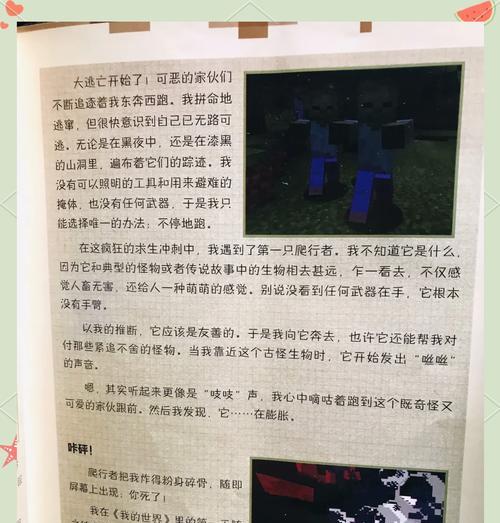 大逃亡开始了！可恶的家伙们
不断追逐着我东奔西跑。我拼命地
逃窜，但很快意识到自己已无路可
逃。无论是在黑夜中，还是在漆黑
的山洞里，遍布着它们的踪迹。我
没有可以照明的工具和用来避难的
掩体，也没有任何武器，于是我只
能选择唯一的办法：不停地跑。
在这疯狂的求生冲刺中，我遇到了第一只爬行者。我不知道它是什么，
因为它和典型的怪物或者传说故事中的生物相去甚远，乍一看去，不仅感
觉人畜无害，还给人一种萌萌的感觉。别说没看到任何武器在手，它根本
没有手臂。
以我的推断，它应该是友善的。于是我向它奔去，也许它还能帮我对
付那些紧追不舍的怪物。当我靠近这个古怪生物时，它开始发出“咝咝”
的声音。
嗯，其实听起来更像是“吱吱”声，我心中嘀咕着跑到这个既奇怪又
可爱的家伙跟前。然后我发现，它……在膨胀。
咔砰！
爬行者把我炸得粉身碎骨，随即
屏幕上出现：你死了！
我在《我的世界》里的第一